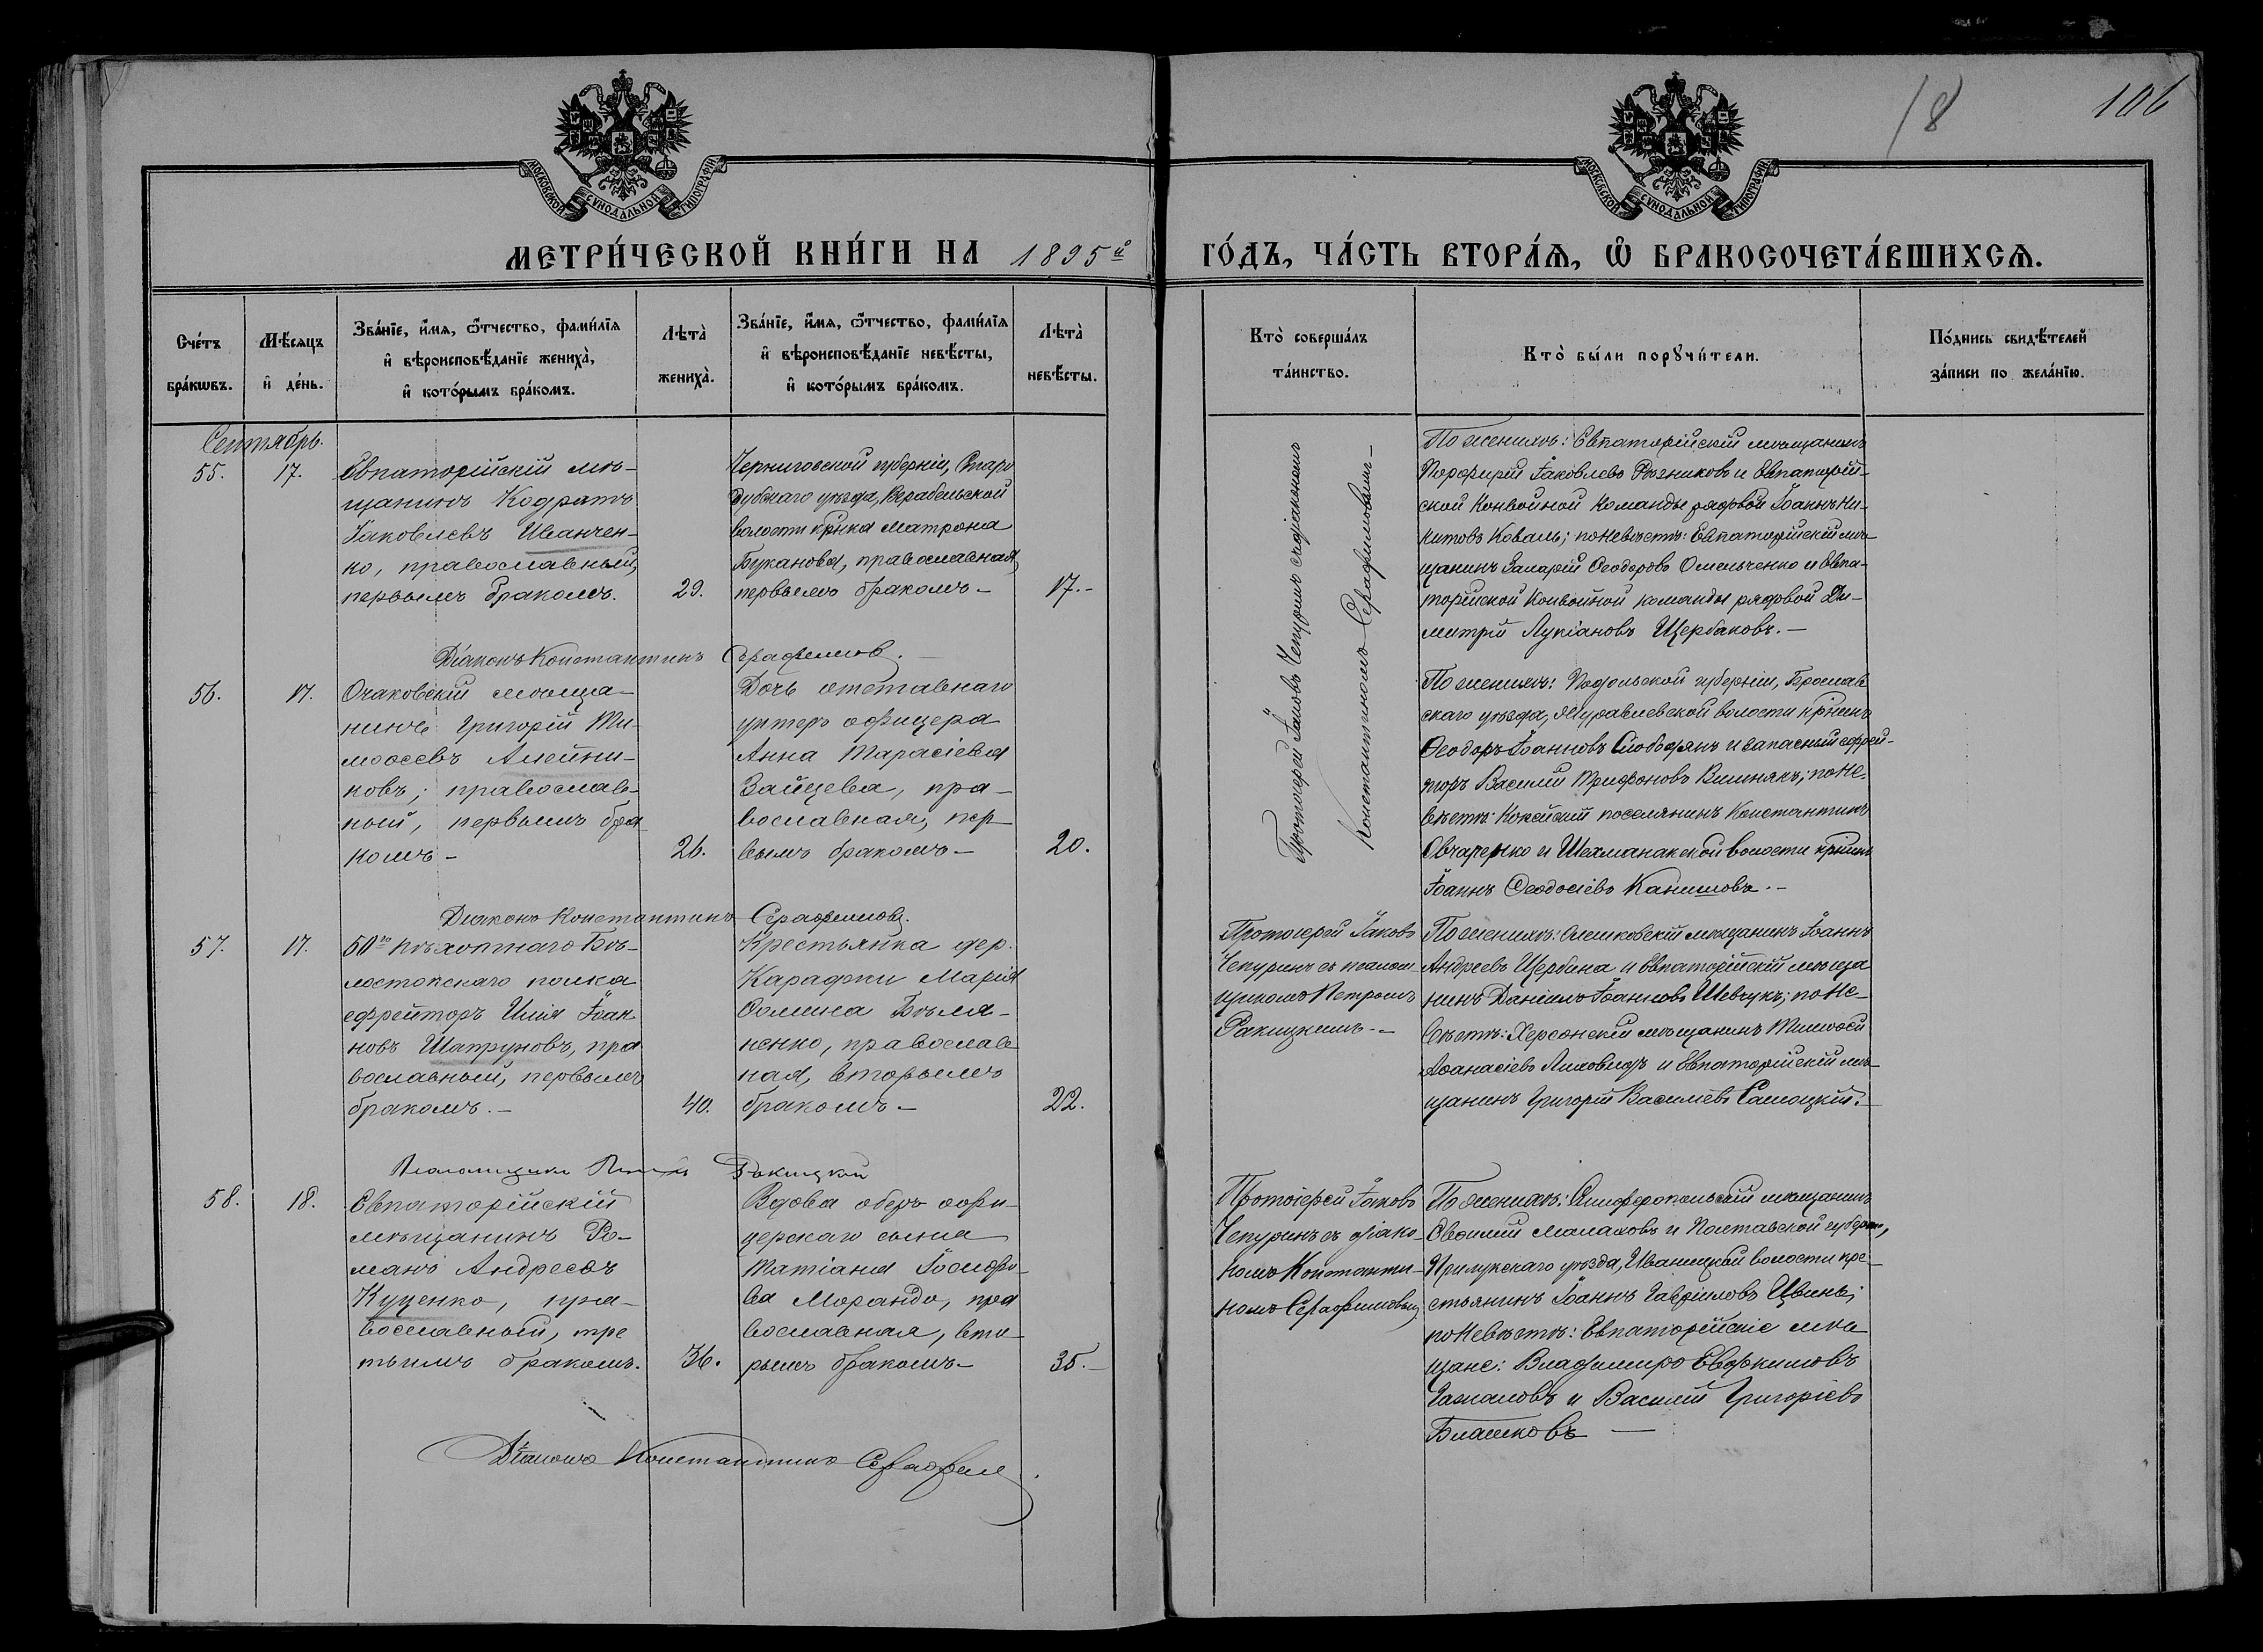 18
106
МОСКОВСКОЙ СУНОДАЛЬНОЙ ТИПОГРАФІИ
МОСКОВСКОЙ СУНОДАЛЬНОЙ ТИПОГРАФІИ
МЕТРИ́ЧЕСКОЙ КНИ́ГИ НА 1895й
ГО́ДЪ, ЧА́СТЬ ВТОРА́Я, Ѡ БРАКОСОЧЕТА́ВШИХСЯ.
Сче́тъ
бра́кωвъ.
Мѣ́сяцъ
и҆ де́нь.
Зва́нїе, и҆́мя, ѻ҆́тчество, фами́лїя
и҆ вѣроисповѣ́данїе жениха̀,
и҆ кото́рымъ бра́комъ.
Лѣта̀
жениха̀.
Зва́нїе, и҆́мя, ѻ҆́тчество, фами́лїя
и҆ вѣроисповѣ́данїе невѣ́сты,
и҆ кото́рымъ бра́комъ.
Лѣта̀
невѣ́сты.
Кто̀ соверша́лъ
та́инство.
Кто̀ бы́ли порꙋчи́тели.
По́дпись свидѣ́телей
за́писи по жела́нїю.
Сентябрь.
55.
17.
Евпаторійскій мѣ-
щанинъ Кодратъ
Іаковлевъ Иванчен-
ко, православный,
первымъ бракомъ.
29.
Черниговской губерніи, Старо
дубскаго уѣзда,
волости кр͠нка Матрона
Буканова, православная,
первымъ бракомъ-
17.-
Протоіерей Іаковъ Чепуринъ съ діакономъ
Константиномъ Серафимовымъ-
По женихѣ: Евпаторійскій мѣщанинъ
Порфирій Іаковлевъ Рѣзниковъ и Евпаторій-
ской Конвойной Команды рядовой Іоаннъ Ни-
китовъ Коваль; по невѣстѣ: Евпаторійскій мѣ-
щанинъ Ѳеодоровъ Омельченко и Евпа-
торійской Конвойной команды рядовой Ди-
митрій Лукіановъ Щербаковъ.-
Діаконъ Константинъ Серафимов.
56.
17.
Очаковскій мѣща-
нинъ Григорій Ти-
моѳеевъ Алейни-
ковъ; православ-
ный, первымъ бра
комъ-
26.
Дочь отставнаго
унтеръ офицера
Анна Тарасіева
Зайцева, пра-
вославная, пер-
вымъ бракомъ-
20.
По женихѣ: Подольской губерніи, Брославъ
скаго уѣзда, Журавлевской волости кр͠нинъ
Ѳеодоръ Іоанновъ Слободянъ и запасный ефрей-
торъ Василій Трифоновъ Вишнякъ; по не-
вѣстѣ: поселянинъ Константинъ
Овчаренко и волости кр͠нинъ
Іоаннъ Ѳеодосіевъ Канишовъ.-
Діаконъ Константинъ Серафимовъ.
57.
17.
50го Пѣхотнаго Бѣ-
лостокскаго полка
ефрейторъ Илія Іоан
новъ Шапруновъ, пра
вославный, первымъ
бракомъ.-
40.
Крестьянка дер.
Караджи Марія
Ѳомина Бѣля-
ненко, православ
ная, вторымъ
бракомъ-
22.
Протоіерей Іаковъ
Чепуринъ съ псалом-
щикомъ Петромъ
Ракицкимъ.-
По женихѣ: Олешковскій мѣщанинъ Іоаннъ
Андреевъ Щербина и Евпаторійскій мѣща
нинъ Даніилъ Іоанновъ Шевчукъ; по не-
вѣстѣ: Херсонскій мѣщанинъ Тимоѳей
Аѳанасіевъ Лиховидъ и Евпаторійскій мѣ-
щанинъ Григорій Василіевъ Самоцкій.-
Псаломщикъ Ракицкій
58.
18.
Евпаторійскій
мѣщанинъ Ро-
манъ Андреевъ
Куценко, пра-
вославный, тре
тьимъ бракомъ.
36.
Вдова оберъ офи-
церскаго сына
Татіана Іосифо-
ва Морандо, пра
вославная, вто-
рымъ бракомъ-
35.-
Протоіерей Іаковъ
Чепуринъ съ діако-
номъ Константи-
номъ Серафимовымъ
По женихѣ: Симферопольскій мѣщанинъ
Малаховъ и Полтавской губерніи,
Прилукскаго уѣзда, Иваницкой волости кре-
стьянинъ Іоаннъ Гавріиловъ Цвинь;
по невѣстѣ: Евпаторійскіе мѣ
щане: Владиміръ Евфимовъ
и Василій Григоріевъ
Блашковъ -
Діаконъ Константинъ Серафим